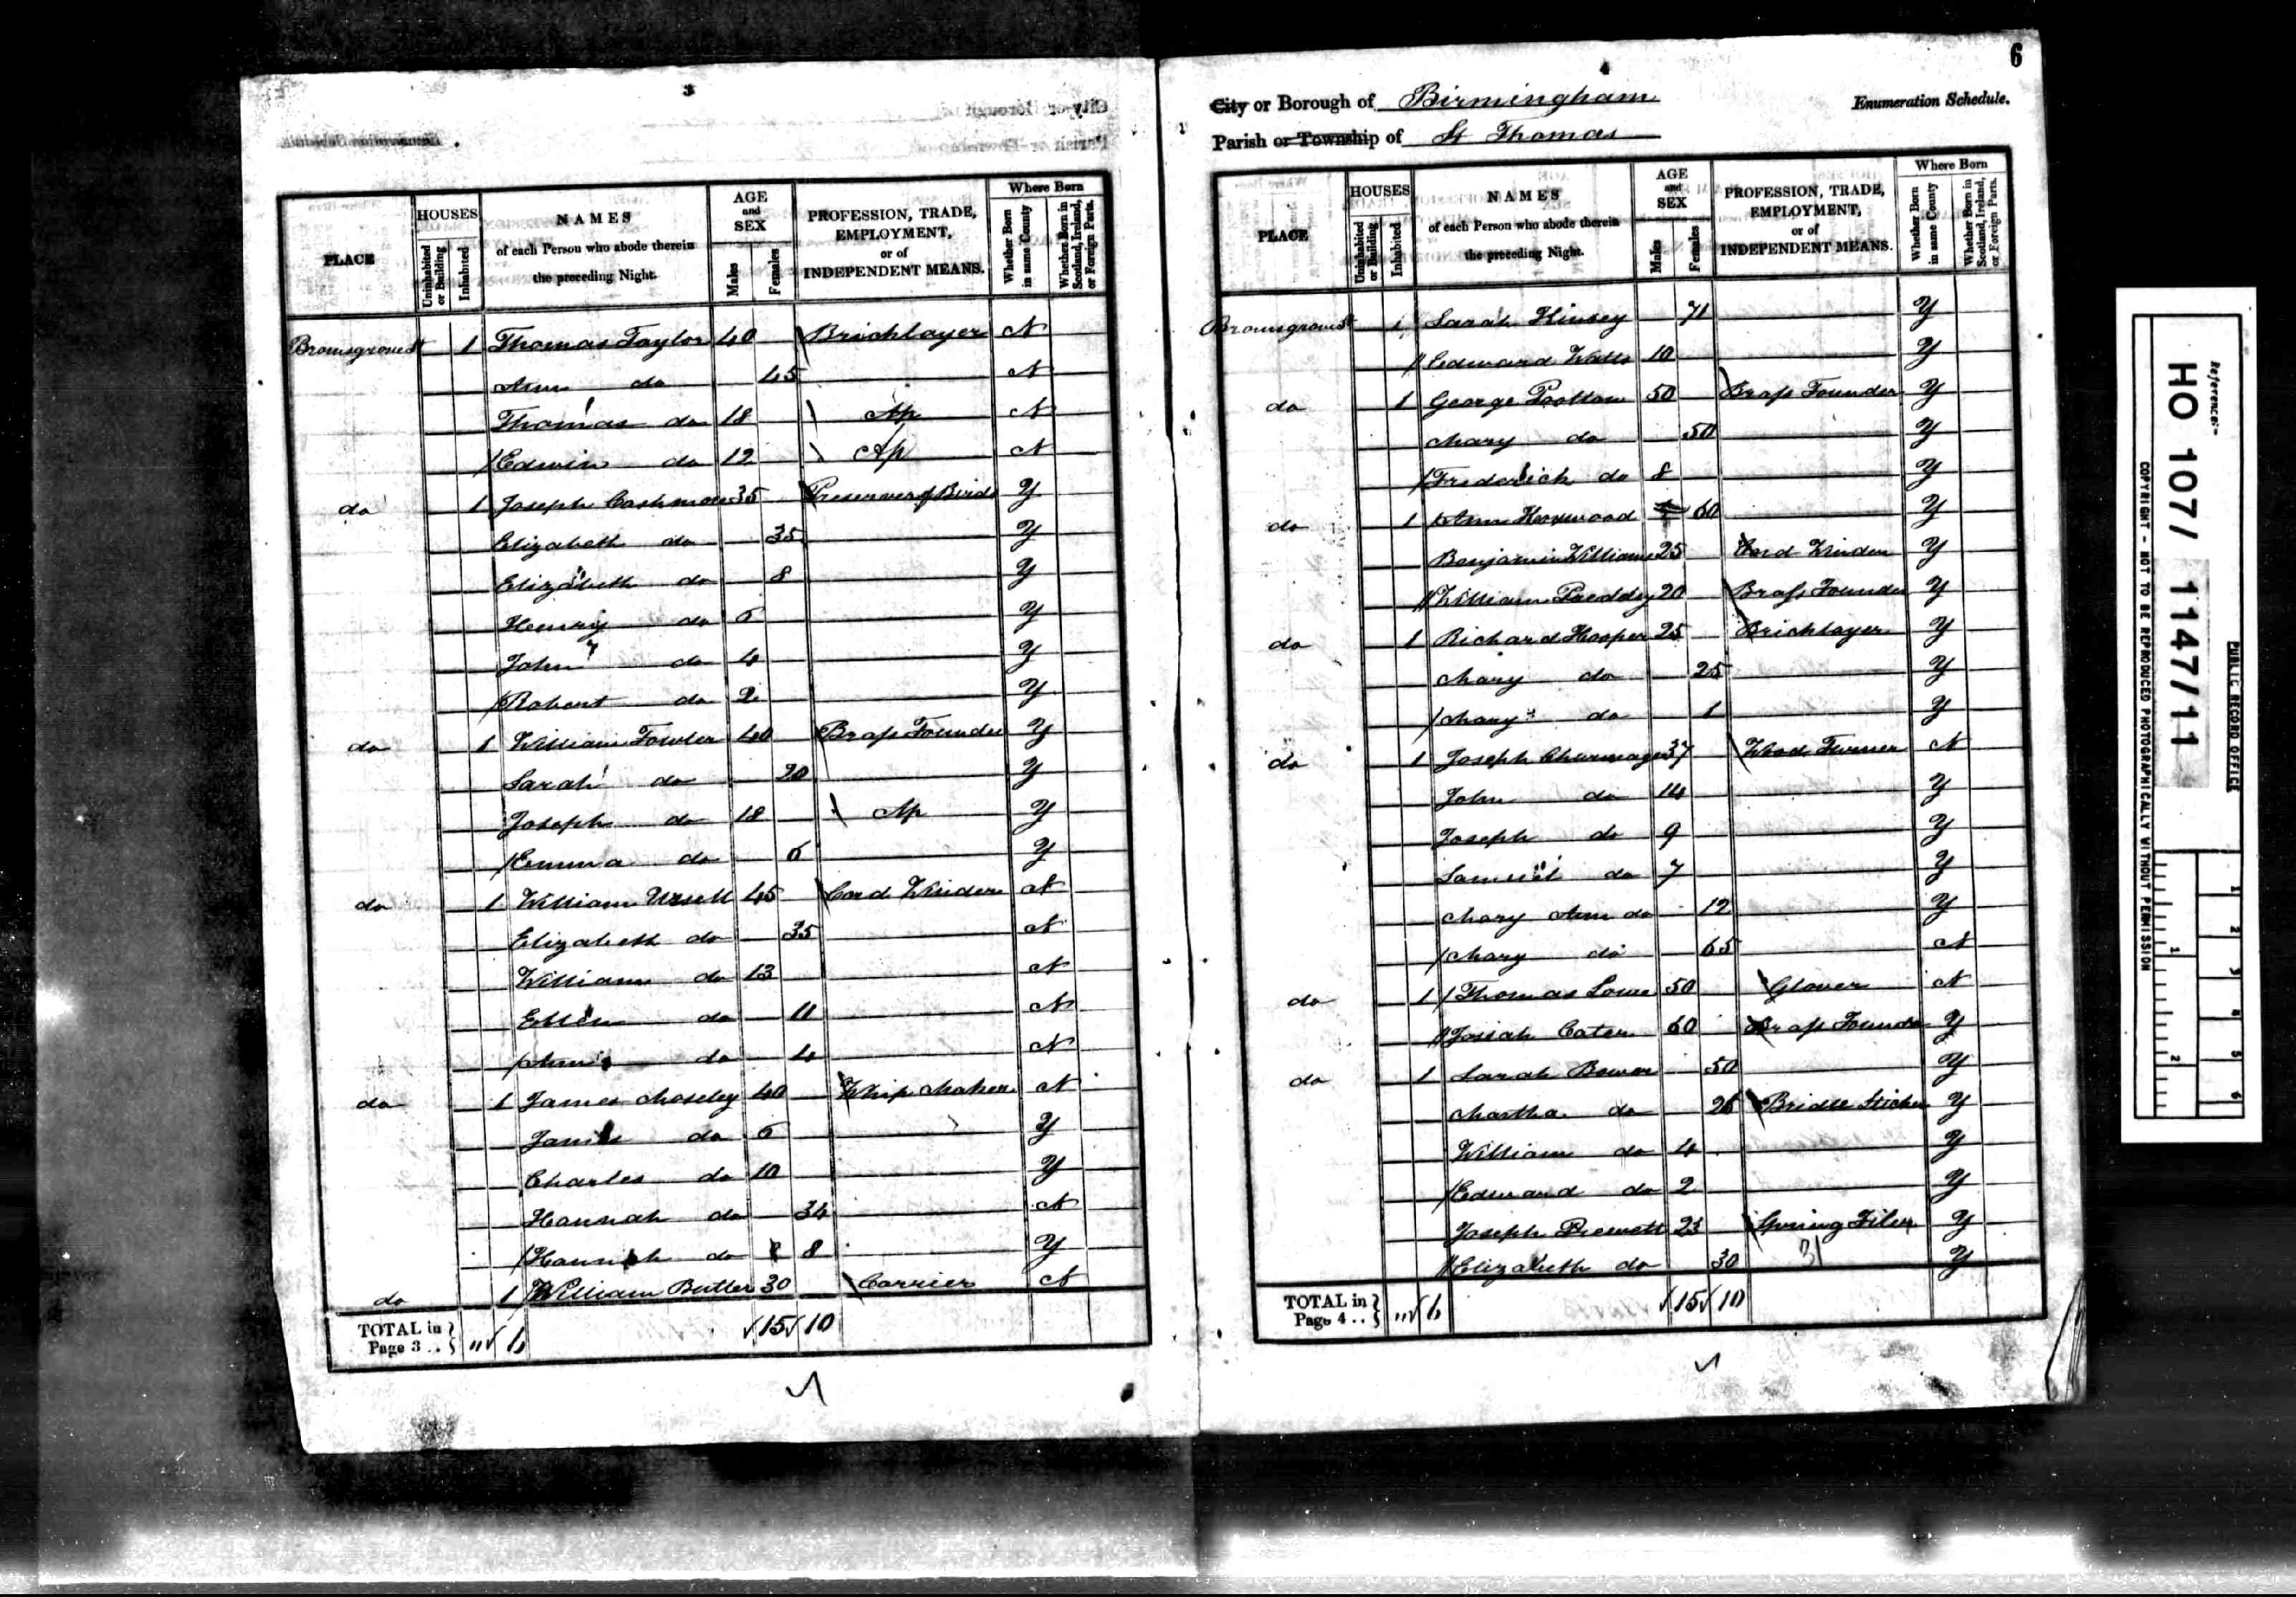 3
PLACE
HOUSES
Uninhabited or Building
Inhabited
NAMES
of each Person who abode therein
the preceding Night.
AGE
and
SEX
Males
Females
PROFESSION, TRADE,
EMPLOYMENT,
or of
INDEPENDENT MEANS.
Where Born
Whether Born in same County
Whether Born in Scotland, Ireland, or Foreign Parts.
Bromsgrove St 1 Thomas Taylor 40 Bricklayer N
Ann do 45 N
Thomas do 18 Ap N
Edwin do 12 Ap N
do 1 Joseph Cashmore 35 Preserver of Birds Y
Elizabeth do 35 Y
Elizabeth do 8 Y
Henry do 6 Y
John do 4 Y
Robert do 2 Y
do 1 William Fowler 40 Brass Founder Y
Sarah do 20 Y
Joseph do 18 Ap Y
Emma do 6 Y
do 1 William Ursell 45 Cord Winder N
Elizabeth do 35 N
William do 13 N
Ellen do 11 N
Ann do 4 N
do 1 James Moseley 40 Whip Maker N
James do 6 Y
Charles do 10 Y
Hannah do 34 N
Hannah do 8 Y
do 1 William Butler 30 Carrier N
TOTAL in Page 3 .. 6 15 10
4
6
City or Borough of Birmingham
Enumeration Schedule.
Parish or Township of St Thomas
PLACE
HOUSES
Uninhabited or Building
Inhabited
NAMES
of each Person who abode therein
the preceding Night.
AGE
and
SEX
Males
Females
PROFESSION, TRADE,
EMPLOYMENT,
or of
INDEPENDENT MEANS.
Where Born
Whether Born in same County
Whether Born in Scotland, Ireland, or Foreign Parts.
Bromsgrove St 1 Sarah 71 Y
Edward Watts 10 Y
do 1 George 50 Brass Founder Y
Mary do 50 Y
Frederick do 8 Y
do 1 Ann 60 Y
Benjamin Williams 25 Cord Winder Y
William Preddy 20 Brass Founder Y
do 1 Richard Hooper 25 Bricklayer Y
Mary do 25 Y
Mary do 1 Y
do 1 Joseph 37 Wood Turner N
John do 14 Y
Joseph do 9 Y
Samuel do 7 Y
Mary Ann do 12 Y
Mary do 65 N
do 1 Thomas Lowe 50 Glover N
Josiah Cater 60 Brass Founder Y
do 1 Sarah Bower 50 Y
Martha do 26 Bridle Sticher Y
William do 4 Y
Edward do 2 Y
Joseph 23 Spring Filer Y
Elizabeth do 30 31 Y
TOTAL in Page 4 .. 6 15 10
Reference:-
HO 107/ 1147/11
PUBLIC RECORD OFFICE
COPYRIGHT - NOT TO BE REPRODUCED PHOTOGRAPHICALLY WITHOUT PERMISSION
1
2
1
2
3
4
5
6